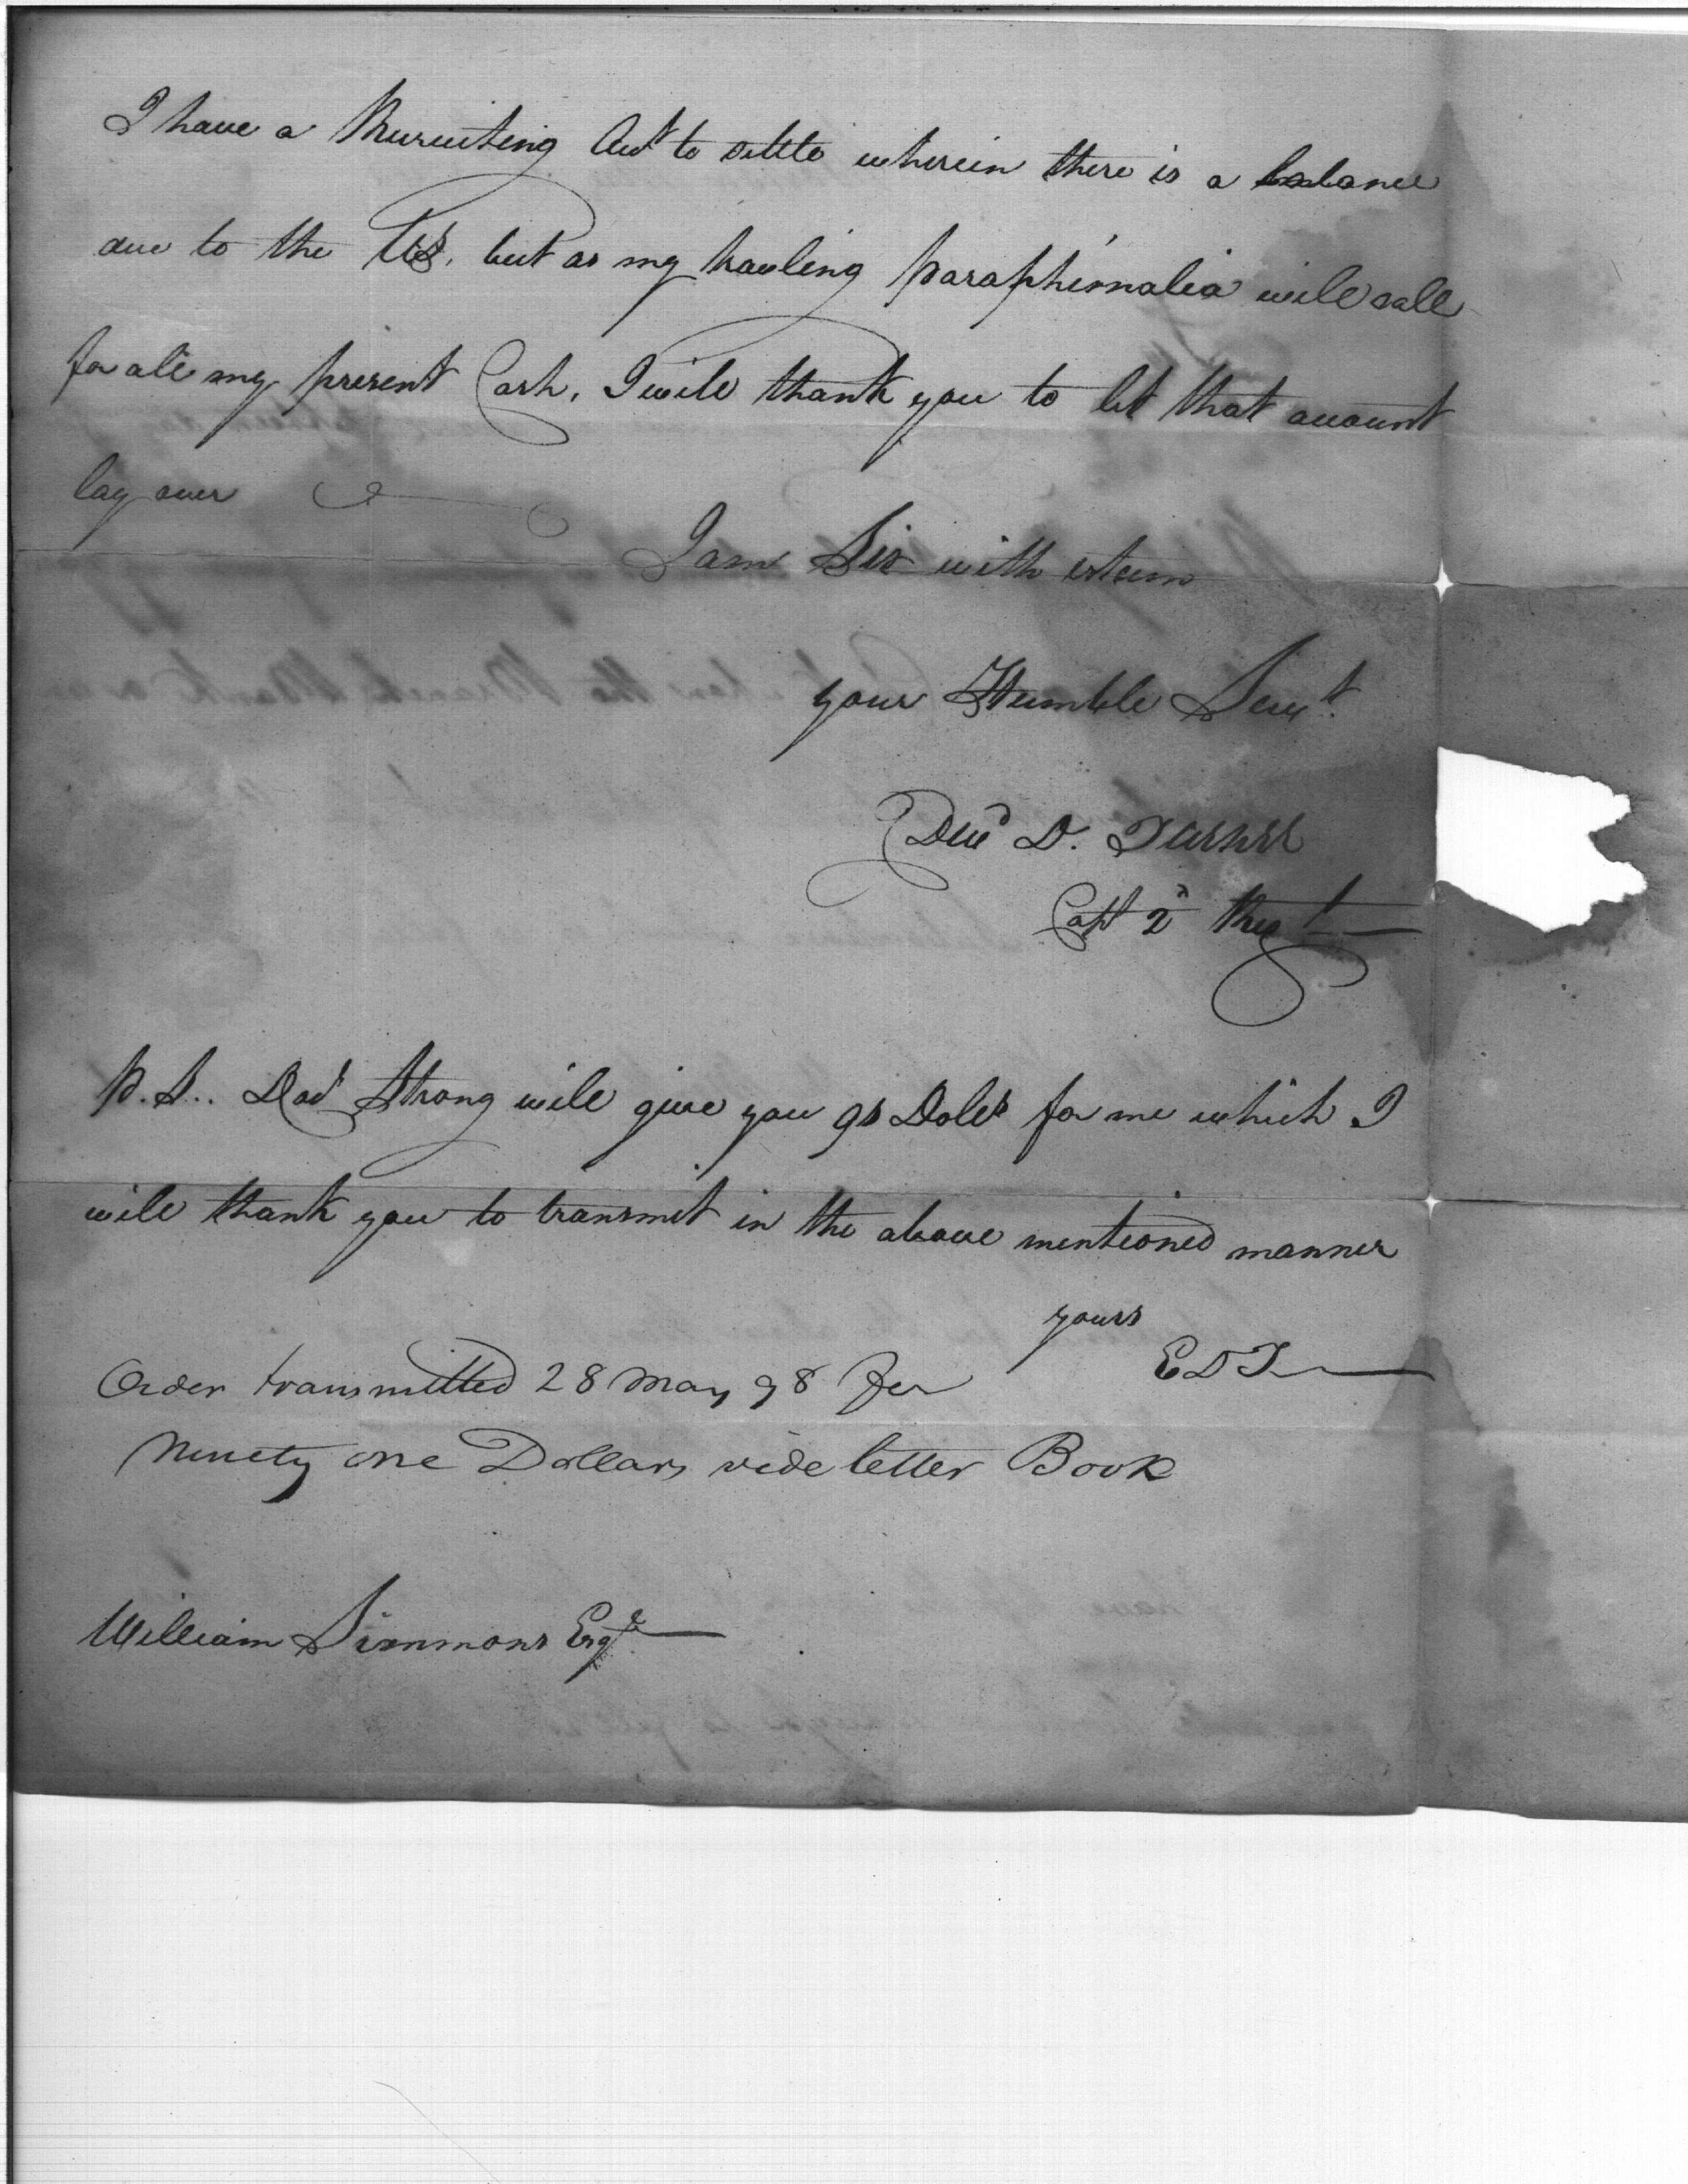 I have a Recruiting Acct to settle wherein there is a balance
due to the US. but as my traveling paraphernalia will call
for all my present Cash, I will thank you to let that account
lay over
I am Sir with esteem
your Humble Servt.
Edwd D. Turner
Capt 2d Regt
P.S.. Doct Strong will give you 91 Dolls for me which I
will thank you to transmit in the above mentioned manner
yours
E D T
Order transmitted 28 May 98 for
Ninety one Dollars vide letter Book
William Simmons Esqr